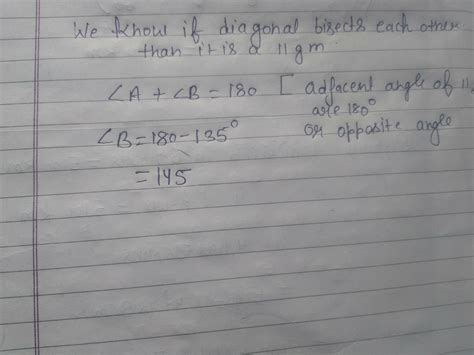 We know if diagonal bisects each other
than it is a 11 gm.
∠A + ∠B = 180 [ adjacent angle of 11
are 180°
∠B = 180 - 135° or opposite angle
= 145